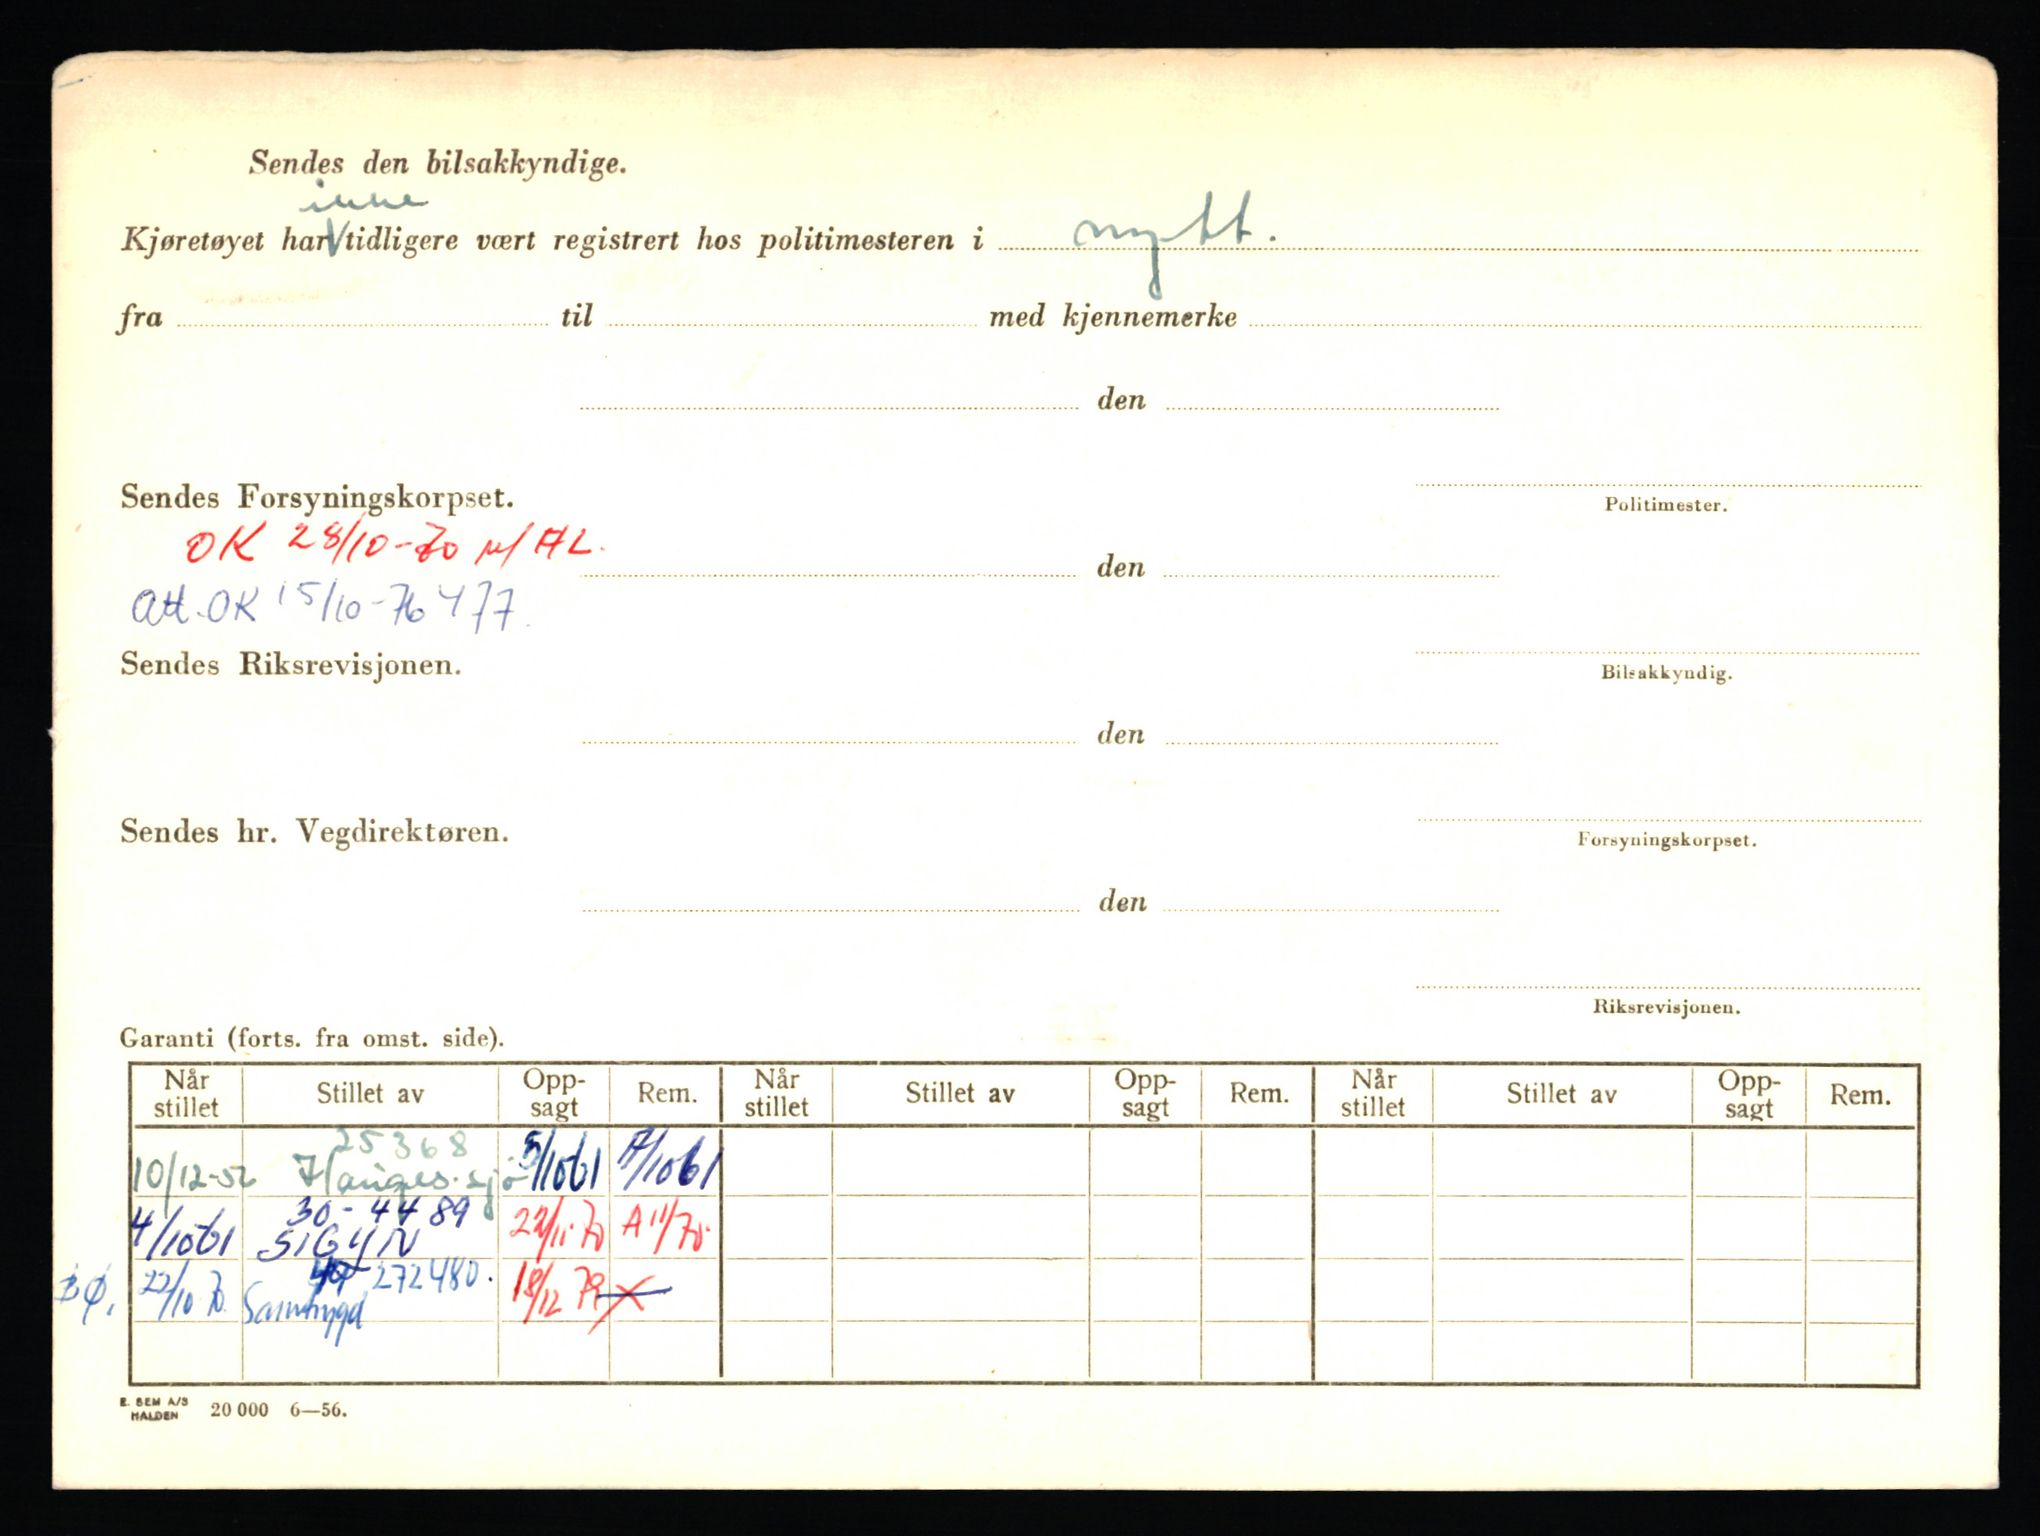 Sendes den bilsakkyndige.
ikke
Kjøretøyet har V tidligere vært registrert hos politimesteren i nytt.
fra til med kjennemerke
den
Politimester.
Sendes Forsyningskorpset.
OK 28/10-70
den
Att. OK 15/10-76
Bilsakkyndig.
Sendes Riksrevisjonen.
den
Forsyningskorpset.
Sendes hr. Vegdirektøren.
den
Riksrevisjonen.
Garanti (forts. fra omst. side).
Når stillet Stillet av Opp-sagt Rem. Når stillet Stillet av Opp-sagt Rem. Når stillet Stillet av Opp-sagt Rem.
25368
10/12-56 Hauges. sjø 5/1061 A/1061
30-4489
4/1061 SIGYN 22/11-70 A 11/70.
BØ. 22/10 70 272480. 18/12 79 X
Samtrygd
E. SEM A/S
HALDEN 20 000 6—56.